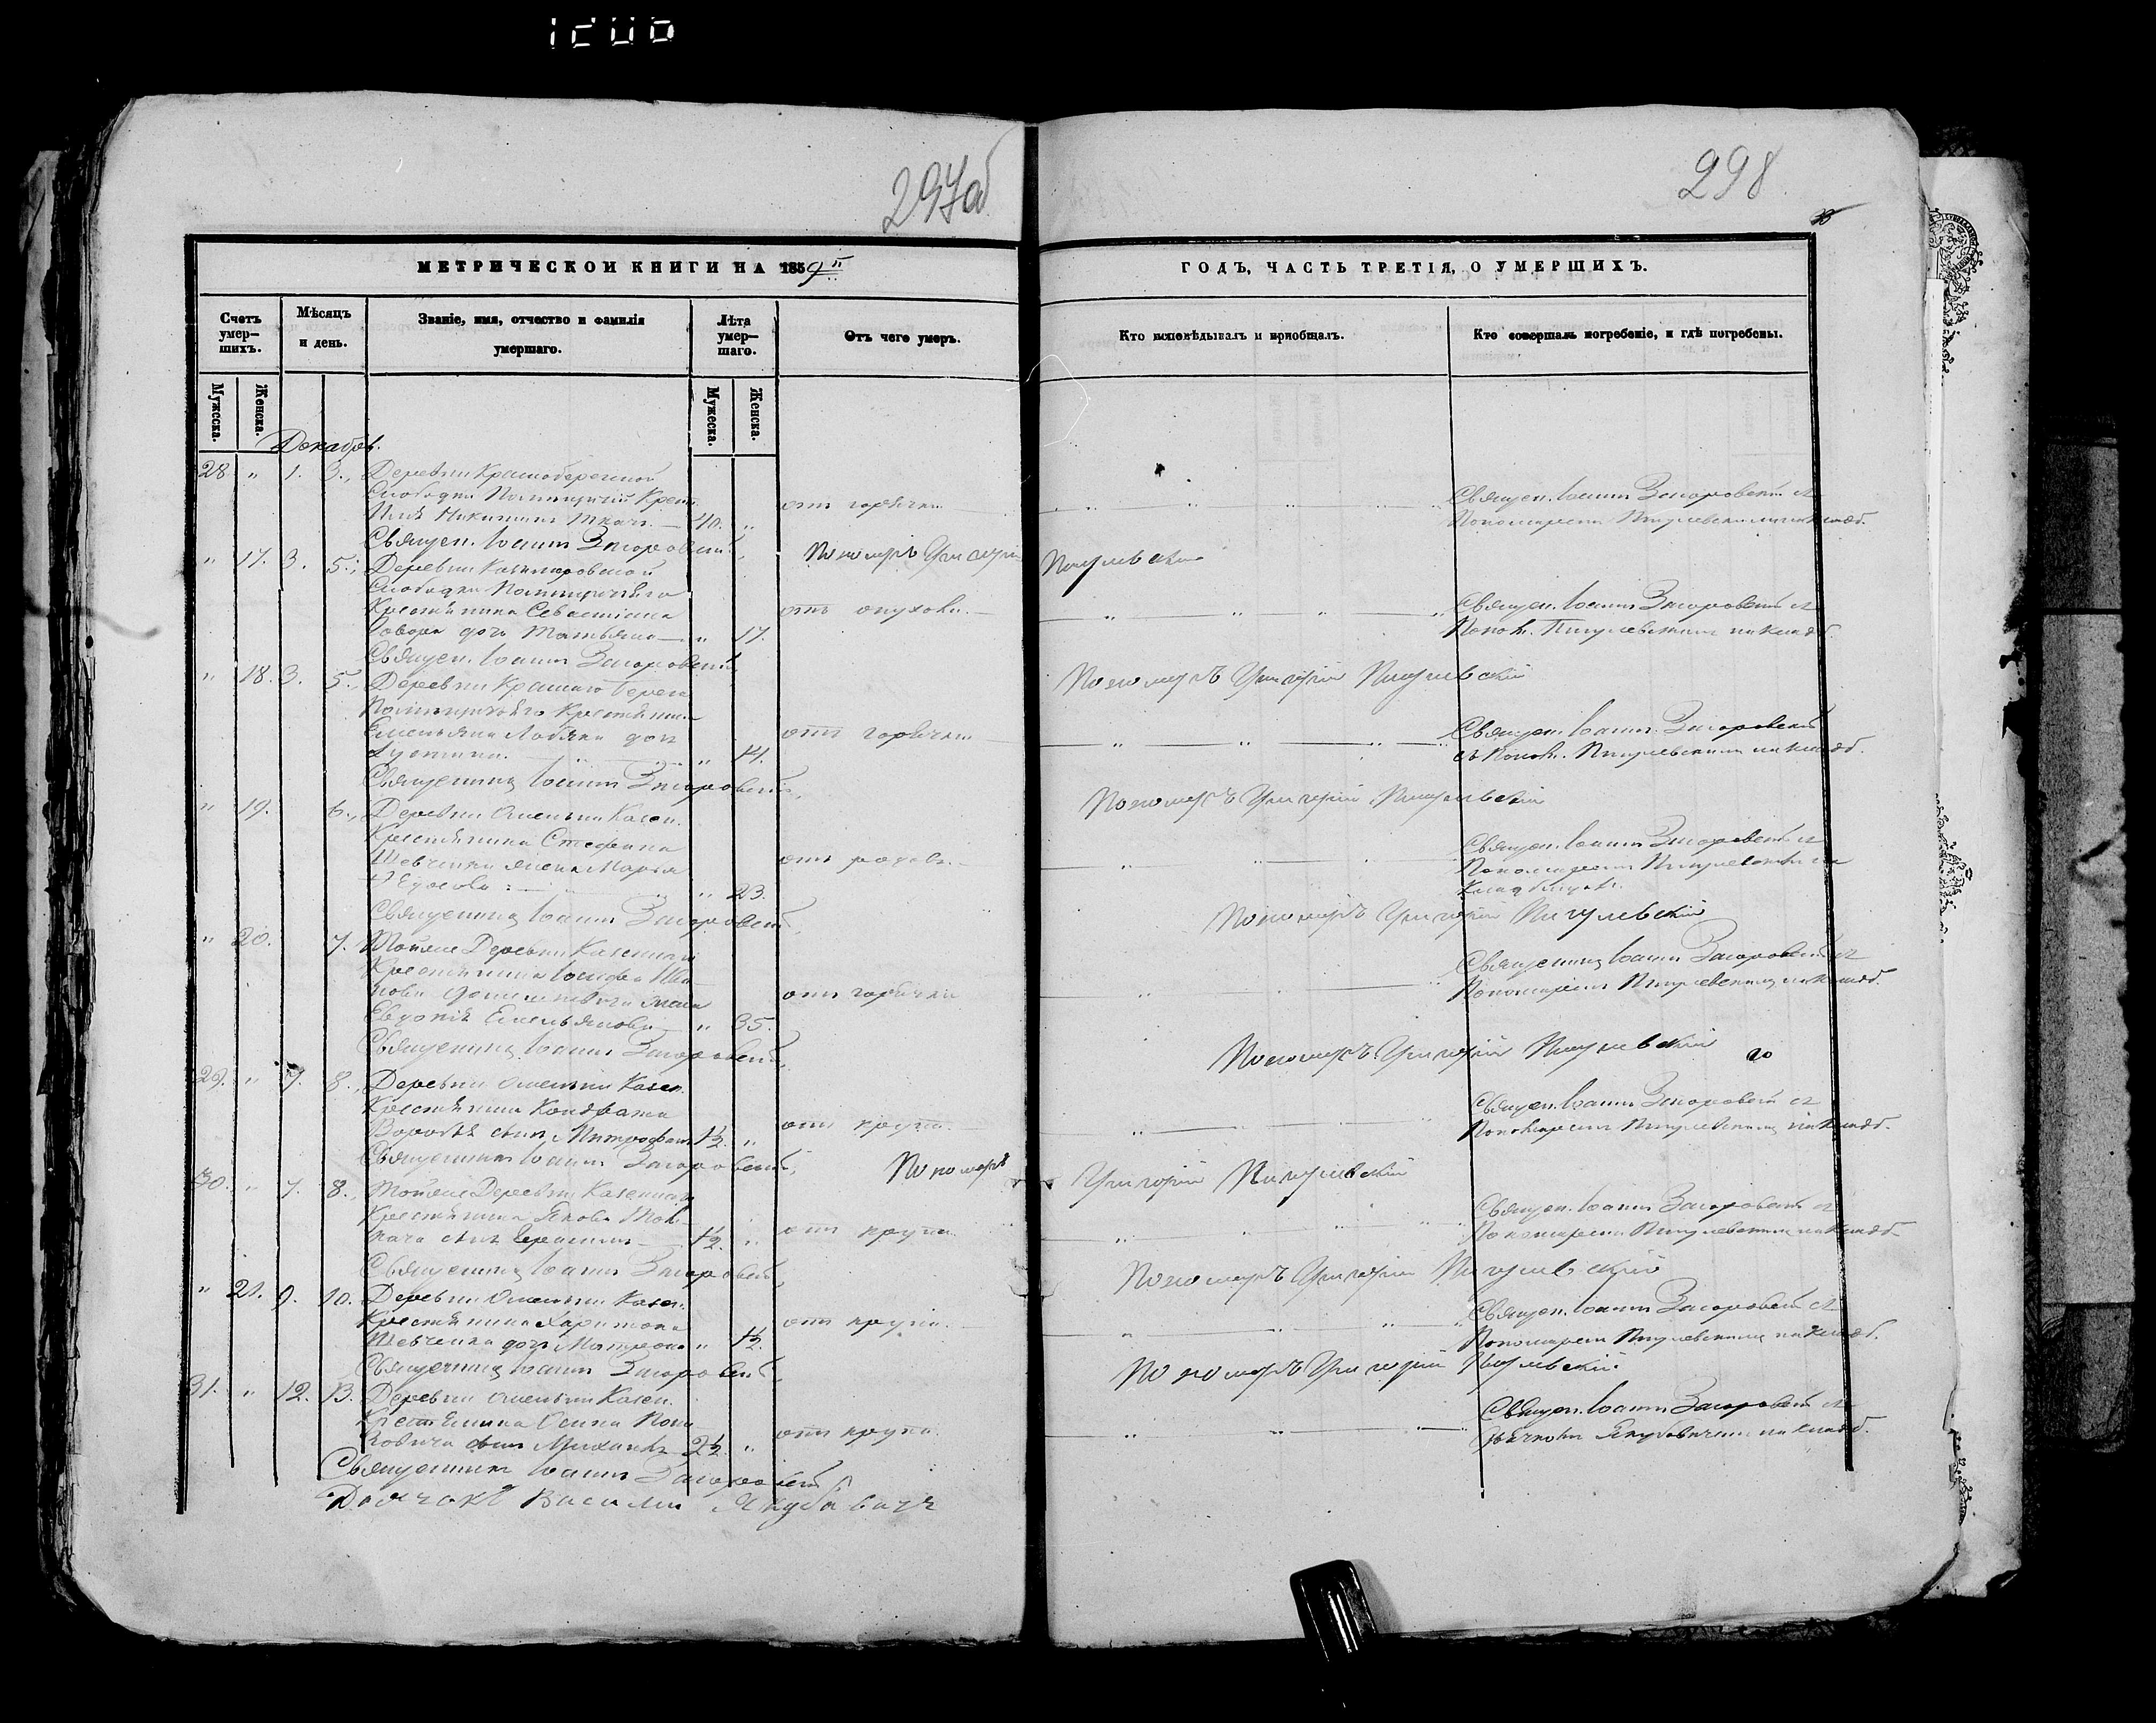 1206
297об
298
МЕТРИЧЕСКОЙ КНИГИ НА 1859й
ГОДЪ, ЧАСТЬ ТРЕТІЯ, О УМЕРШИХЪ.
Счетъ умер-шихъ.
Мѣсяцъ и день.
Званіе, имя, отчество и фамилія умершаго.
Лѣта умер-шаго.
Отъ чего умеръ.
Кто исповѣдывалъ и пріобщалъ.
Кто совершалъ погребеніе, и гдѣ погребены.
Мужеска.
Женска.
Мужеска.
Женска.
Декабрь.
28 " 1. 3. Деревни Краснобережской
Слободки
Никитинъ Ткачъ 40. "
отъ горячки
Священ. Іоаннъ Загоровскій съ
Пономаремъ Пигулевскимъ на кладб.
Священ. Іоаннъ Загоровскій
Пономарь Григорій Пигулевскій
" 17. 3. 5. Деревни
Слободки
Крестянина Севастіана
дочь Татьяна " 17.
отъ опухоли.
Священ. Іоаннъ Загоровскій съ
Поном. Пигулевскимъ на кладб.
Священ. Іоаннъ Загоровскій
Пономарь Григорій Пигулевскій
" 18. 3. 5. Деревни Краснаго берега
Крестянина
Емельяна дочь
" 14.
отъ горячки
Священ. Іоаннъ Загоровскій
съ Поном. Пигулевскимъ на кладб.
Священникъ Іоаннъ Загоровскій
Пономарь Григорій Пигулевскій
" 19. 6. Деревни Омельни Казен.
Крестянина Стефана
Шевченки жена Марья
" 23.
отъ родовъ.
Священ. Іоаннъ Загоровскій съ
Пономаремъ Пигулевскимъ на
кладбищѣ.
Священникъ Іоаннъ Загоровскій
Пономарь Григорій Пигулевскій
" 20. 7. Тойже Деревни Казеннаго
Крестянина Іосифа Ива
нова жена
Евдокія Емельянова " 35.
отъ горячки
Священникъ Іоаннъ Загоровскій съ
Пономаремъ Пигулевскимъ на кладб.
Священникъ Іоаннъ Загоровскій
Пономарь Григорій Пигулевскій
29. " 7. 8. Деревни Омельни Казен.
Крестянина Кондрата
сынъ Митрофанъ 1½. "
отъ крупа.
Священ. Іоаннъ Загоровскій съ
Пономаремъ Пигулевскимъ на кладб.
Священникъ Іоаннъ Загоровскій
Пономарь Григорій Пигулевскій
30. " 7. 8. Тойже Деревни Казеннаго
Крестянина Якова
сынъ Герасимъ 1½. "
отъ крупа
Священ. Іоаннъ Загоровскій съ
Пономаремъ Пигулевскимъ на кладб.
Священникъ Іоаннъ Загоровскій
Пономарь Григорій Пигулевскій
" 21. 9. 10. Деревни Омельни Казен.
Крестянина Харитона
Шевченка дочь Матрона " 1½.
отъ крупа.
Священ. Іоаннъ Загоровскій съ
Пономаремъ Пигулевскимъ на кладб.
Священникъ Іоаннъ Загоровскій
Пономарь Григорій Пигулевскій.
31. " 12. 13. Деревни Омельни Казен.
Крестянина Осипа
сынъ Михаилъ 2½. "
отъ крупа.
Священ. Іоаннъ Загоровскій съ
Дьячкомъ Якубовичемъ на кладб.
Священникъ Іоаннъ Загоровскій
Дьячокъ Василій Якубовичъ